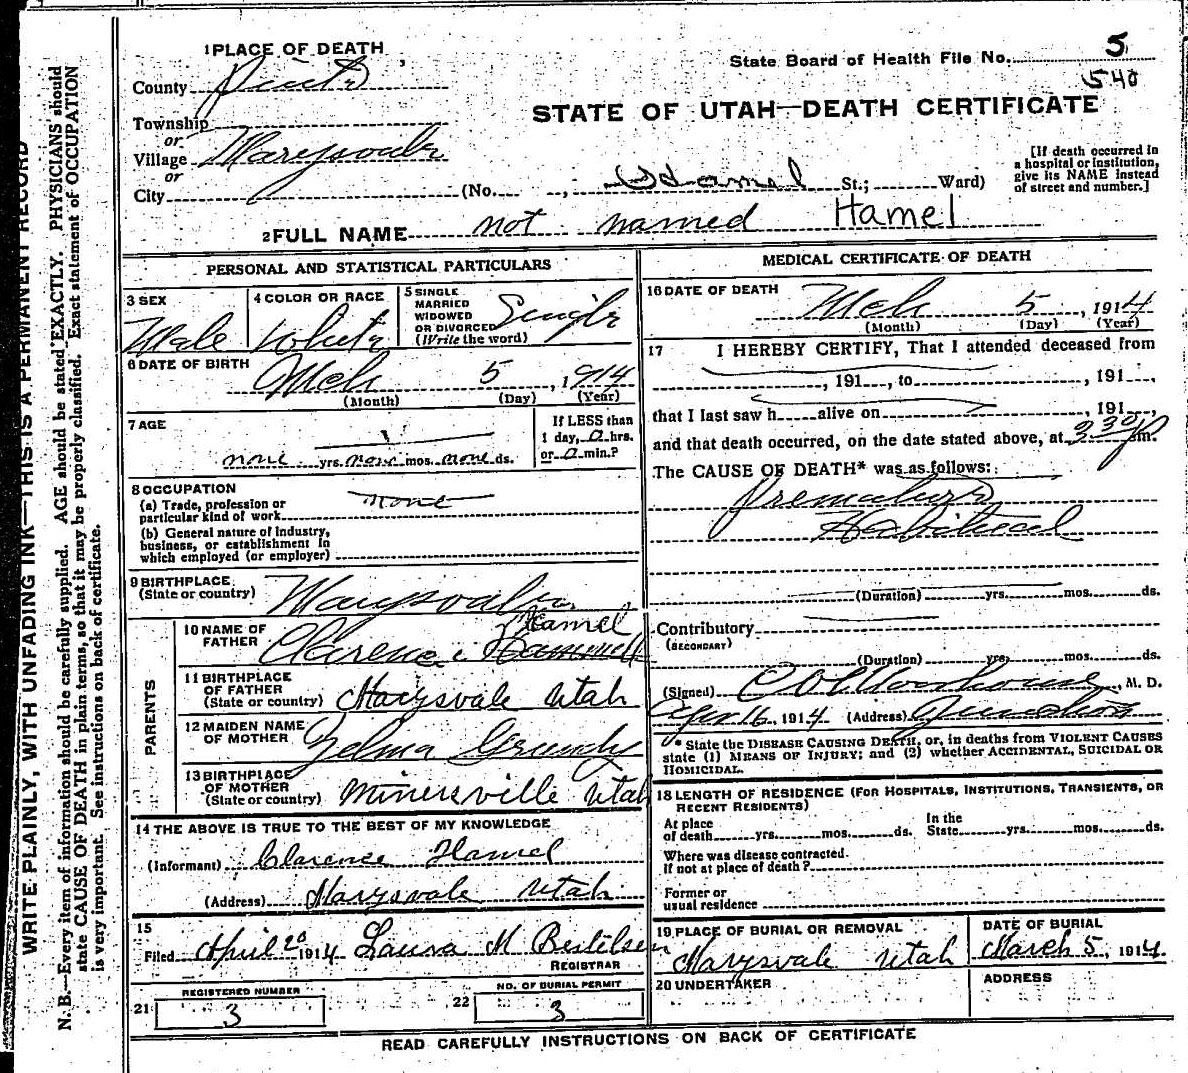 WRITE PLAINLY, WITH UNFADING INK—THIS IS A PERMANENT RECORD
N. B.—Every item of information should be carefully supplied. AGE should be stated EXACTLY. PHYSICIANS should
state CAUSE OF DEATH in plain terms, so that it may be properly classified. Exact statement of OCCUPATION
is very important. See instructions on back of certificate.
1 PLACE OF DEATH
County
Township
or
Village Marysvale
or
City
State Board of Health File No. 5
540
STATE OF UTAH—DEATH CERTIFICATE
[If death occurred in
a hospital or institution,
give its NAME instead
of street and number.]
(No. , St.; Ward)
2 FULL NAME not named Hamel
PERSONAL AND STATISTICAL PARTICULARS
3 SEX
Male
4 COLOR OR RACE
White
5 SINGLE
MARRIED
WIDOWED
OR DIVORCED
(Write the word)
Single
6 DATE OF BIRTH
Mch 5, 1914
(Month) (Day) (Year)
7 AGE
none yrs. none mos. none ds.
If LESS than
1 day, 0 hrs.
or 0 min.?
8 OCCUPATION
(a) Trade, profession or
particular kind of work
None
(b) General nature of industry,
business, or establishment in
which employed (or employer)
9 BIRTHPLACE
(State or country)
Marysvale
PARENTS
10 NAME OF
FATHER
Hamel
Clarence Hammell
11 BIRTHPLACE
OF FATHER
(State or country)
Marysvale Utah
12 MAIDEN NAME
OF MOTHER
Zelma Grundy
13 BIRTHPLACE
OF MOTHER
(State or country)
Minersville Utah
14 THE ABOVE IS TRUE TO THE BEST OF MY KNOWLEDGE
(Informant) Clarence Hamel
(Address) Marysvale Utah
15
Filed April 20 1914 Laura M Bertelsen
REGISTRAR
21 REGISTERED NUMBER
3
22 NO. OF BURIAL PERMIT
3
MEDICAL CERTIFICATE OF DEATH
16 DATE OF DEATH
Mch 5, 1914
(Month) (Day) (Year)
17 I HEREBY CERTIFY, That I attended deceased from
, 191 , to , 191 ,
that I last saw h alive on , 191 ,
and that death occurred, on the date stated above, at 2.30 p m.
The CAUSE OF DEATH* was as follows:
Habitual
(Duration) yrs. mos. ds.
Contributory
(SECONDARY)
(Duration) yrs. mos. ds.
(Signed) , M. D.
Apr 16, 1914 (Address) Junction
* State the DISEASE CAUSING DEATH, or, in deaths from VIOLENT CAUSES
state (1) MEANS OF INJURY; and (2) whether ACCIDENTAL, SUICIDAL OR
HOMICIDAL.
18 LENGTH OF RESIDENCE (FOR HOSPITALS, INSTITUTIONS, TRANSIENTS, OR
RECENT RESIDENTS)
At place
of death yrs. mos. ds.
In the
State yrs. mos. ds.
Where was disease contracted
if not at place of death?
Former or
usual residence
19 PLACE OF BURIAL OR REMOVAL
Marysvale Utah
DATE OF BURIAL
March 5, 1914
20 UNDERTAKER
ADDRESS
READ CAREFULLY INSTRUCTIONS ON BACK OF CERTIFICATE